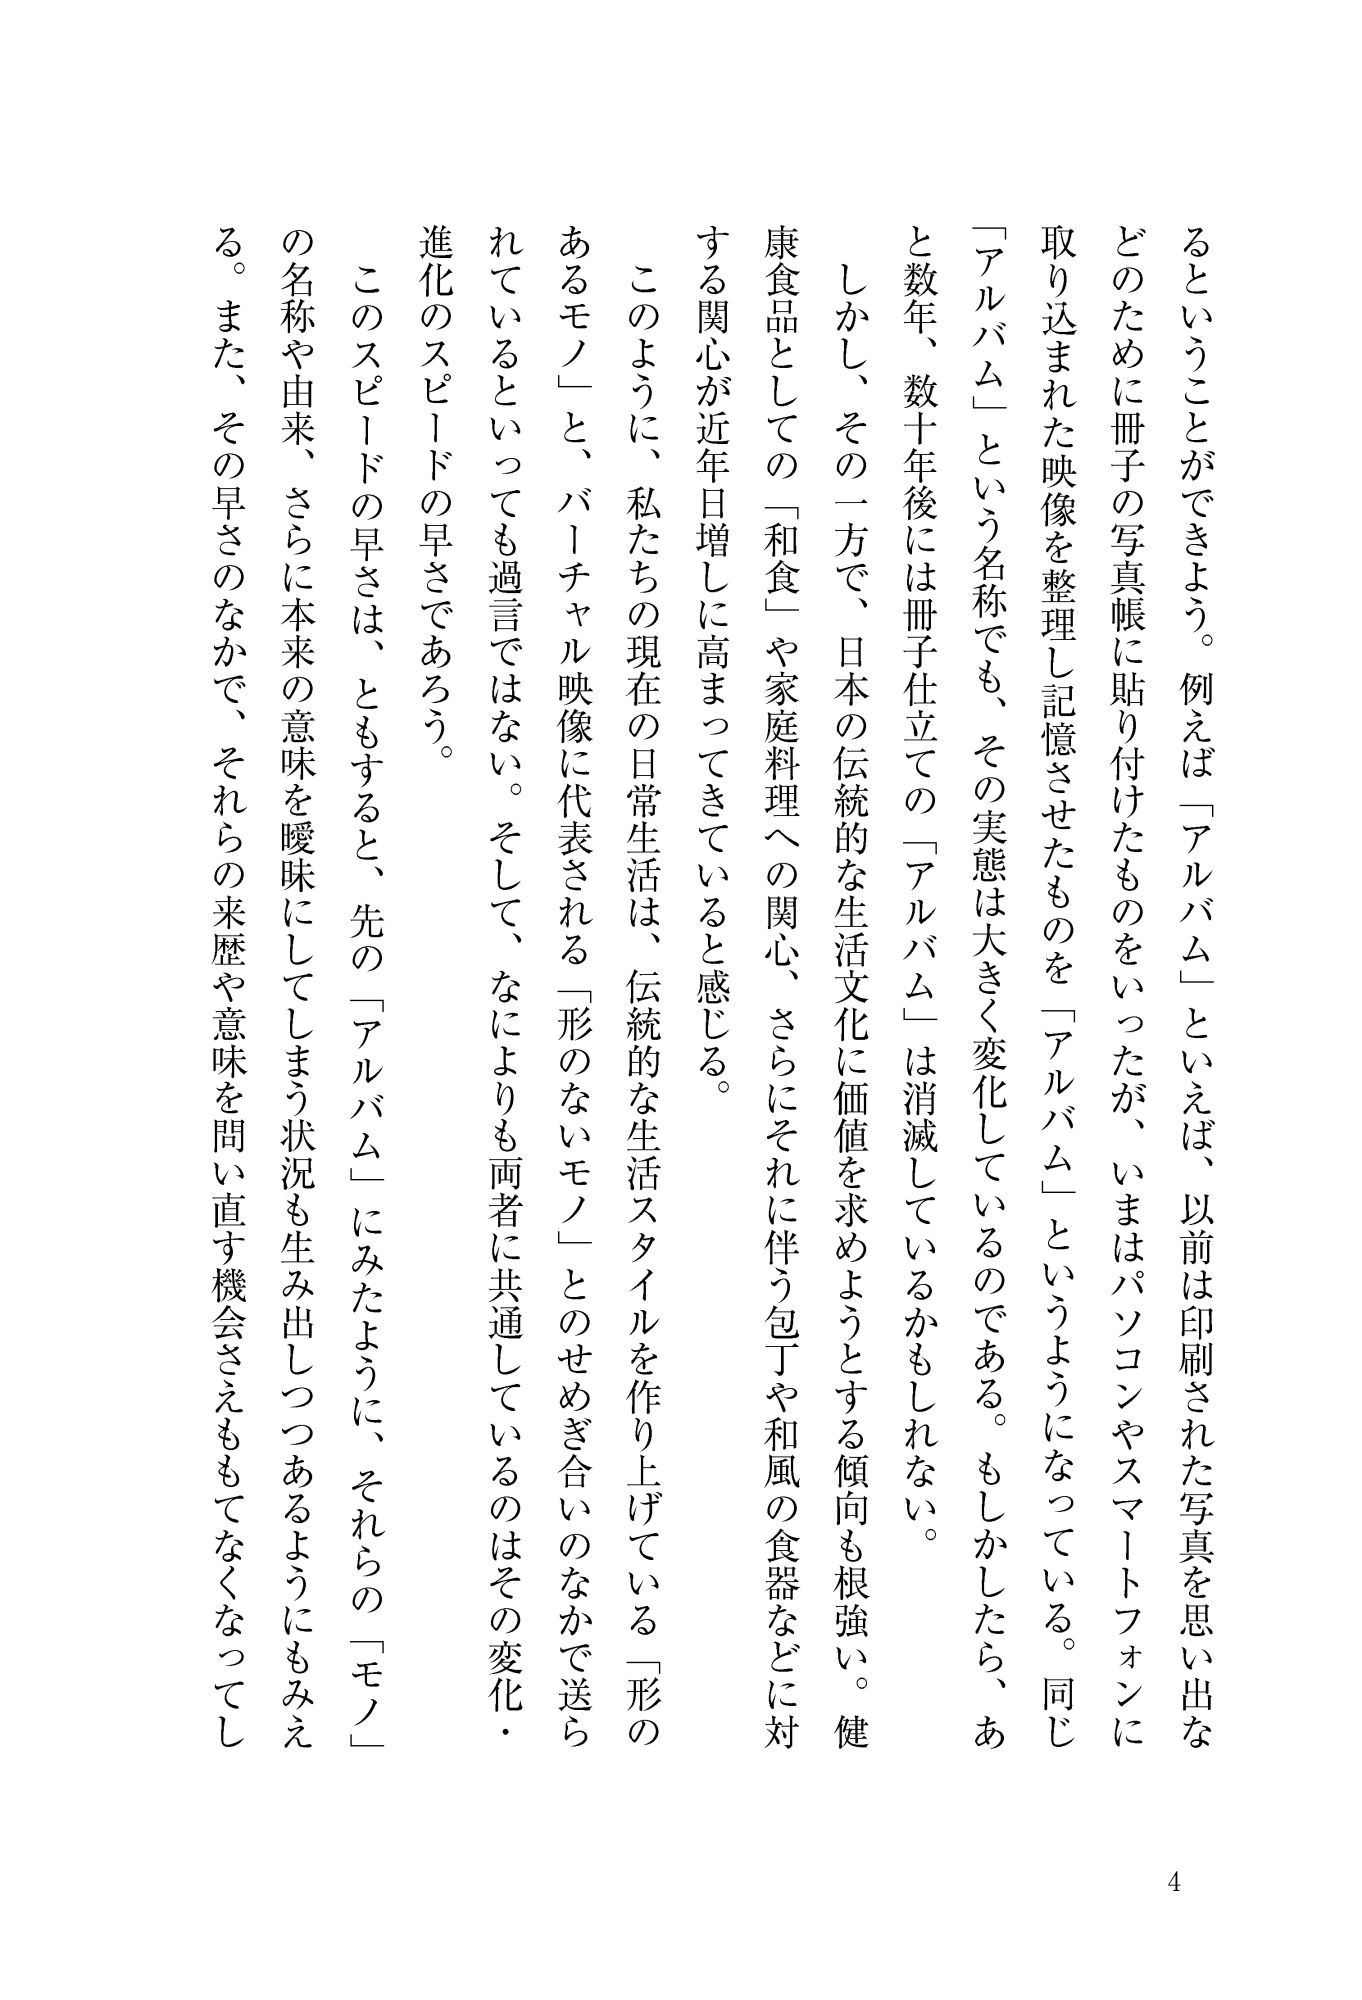 るということができよう。例えば「アルバム」といえば、以前は印刷された写真を思い出な
どのために冊子の写真帳に貼り付けたものをいったが、いまはパソコンやスマートフォンに
取り込まれた映像を整理し記憶させたものを「アルバム」というようになっている。同じ
「アルバム」という名称でも、その実態は大きく変化しているのである。もしかしたら、あ
と数年、数十年後には冊子仕立ての「アルバム」は消滅しているかもしれない。
しかし、その一方で、日本の伝統的な生活文化に価値を求めようとする傾向も根強い。健
康食品としての「和食」や家庭料理への関心、さらにそれに伴う包丁や和風の食器などに対
する関心が近年日増しに高まってきていると感じる。
このように、私たちの現在の日常生活は、伝統的な生活スタイルを作り上げている「形の
あるモノ」と、バーチャル映像に代表される「形のないモノ」とのせめぎ合いのなかで送ら
れているといっても過言ではない。そして、なによりも両者に共通しているのはその変化・
進化のスピードの早さであろう。
このスピードの早さは、ともすると、先の「アルバム」にみたように、それらの「モノ」
の名称や由来、さらに本来の意味を曖昧にしてしまう状況も生み出しつつあるようにもみえ
る。また、その早さのなかで、それらの来歴や意味を問い直す機会さえももてなくなってし
4